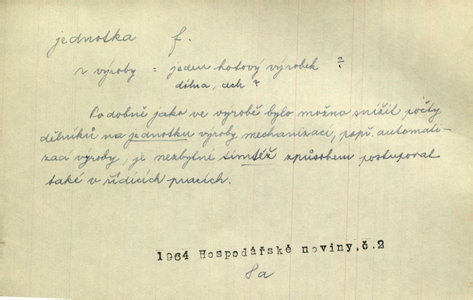 jednotka f.
r výroby = jeden hotový výrobek ?
dílna, ?
Podobně jako ve výrobě bylo možno snížit počty
dělníků na jednotku výroby mechanizací, popř. automati-
zací výroby, je nezbytné tímtéž způsobem postupovat
také v řídících pracích.
1964 Hospodářské noviny, č.2
8a